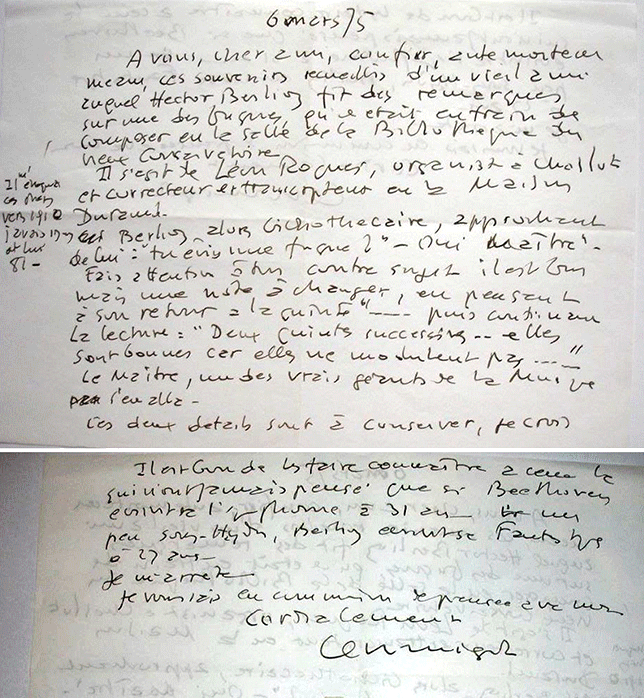 6 mars 75
A vous, cher ami, confier, ante mortem
meam, ces souvenirs recueillis d'un vieil ami
auquel Hector Berlioz fit des remarques
sur une des fugues, qu'il etait en train de
composer en la salle de la Bibliotheque du
vieux Conservatoire
Il s'agit de Léon Roques, organiste à Chaillot
et correcteur et transcripteur en la Maison
Durand.
Il m'
ces
vers 1910
j'avais 19 ans
et lui
81 -
Berlioz, alors bibliothecaire, approchant
de lui : "tu écris une fugue ?" - Oui Maître -
Fais attention à ton contre sujet il est bon
mais une note à changer, en pensant
à son retour à la quinte" ---- puis continuant
la lecture : " Deux quintes successives -- elles
sont bonnes car elles ne modulent pas ---- "
Le Maître, un des vrais géants de la Musique
s'en alla -
Ces deux détails sont à conserver, je crois
Il est bon de les faire connaître à ceux là
qui n'ont jamais pensé que si Beethoven
écrivit la 1e symphonie à 31 ans - un
peu sous-Haydn, Berlioz écrivit sa Fantastique
à 27 ans -
Je m'arrete -
Je vous sais en communion de pensée avec moi
Cordialement